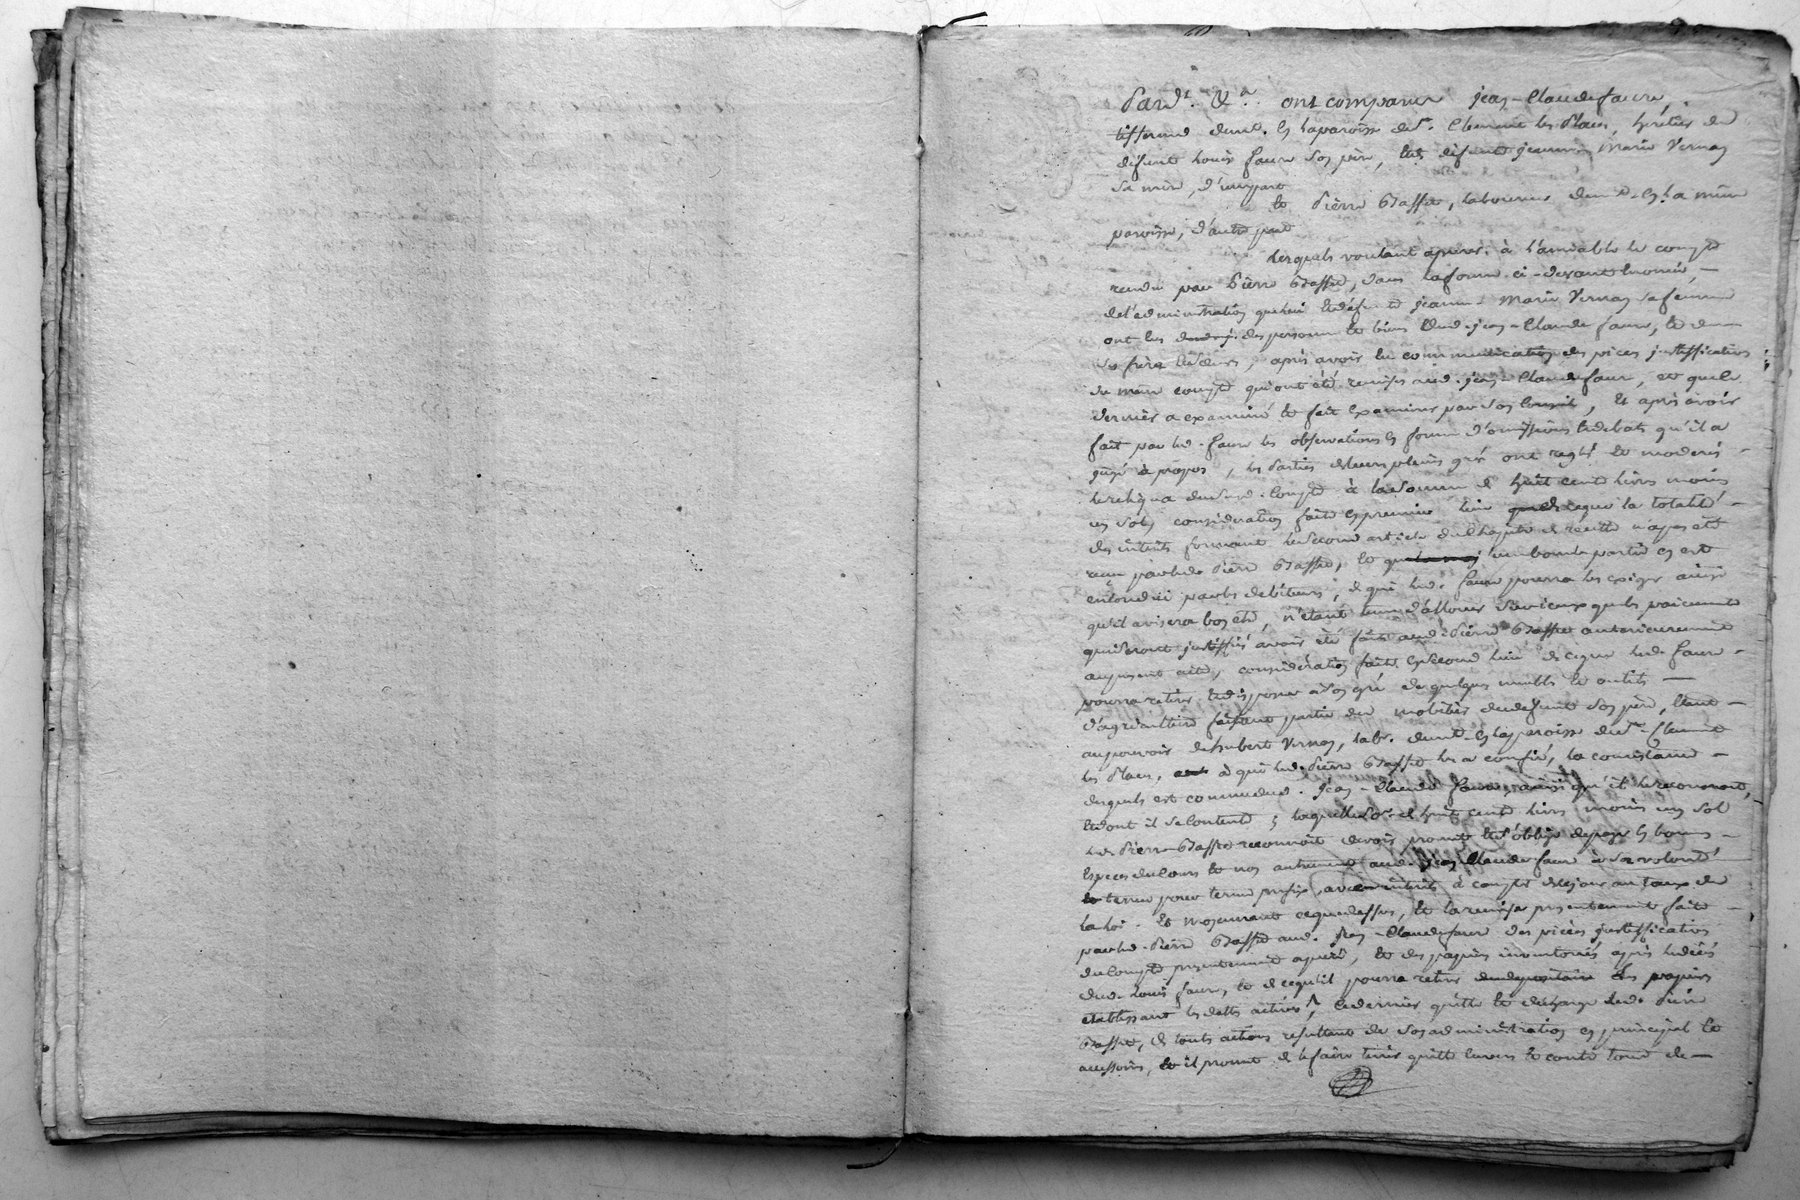 Pard.t &.a ont comparu jean-Claude faure,
tisserand demt. en la paroisse de St. Clement les Places, heritier de
defunt Louis faure son père, et de defunte jeanne Marie Vernay
sa mère, d'une part
Et Pierre Btasse, laboureur demt. en la même
paroisse, d'autre part
Lesquels voulant apurer à l'amiable le compte
rendu par Pierre, dans la forme ci-devant énoncée
de l'administration que lui et défunte jeanne Marie Vernay sa femme
ont eue des personne et biens dud. jean-Claude faure, et de
ses frères et sœurs, après avoir eu communication des pièces justifficatives
du même compte qui ont été remises aud. jean-Claude faure, et que le
dernier a examiné et fait examiner par son Conseil, Et après avoir
fait par led. faure les observations en forme d'omissions et debats qu'il a
jugé à propos, les Parties de leurs pleins gré ont reglé et moderé
le reliqua dud. compte à la somme de huit cent livres moins
un sol, consideration faite en premier lieu que la totalité
des intérêts formant le second article du Chapitre de recette n'a pas été
reçue par led. Pierre, et qu'une bonne partie en est
encore due par les debiteurs, de qui led. faure pourra les exiger ainsi
qu'il avisera bon être, n'étant tenu d'allouer à iceux que les paiements
qui seront justiffiés avoir été faits aud. Pierre anterieurement
au present acte, consideration faite en second lieu de ce que led. faure
pourra retirer et disposer à son gré de quelques meubles et outils
d'agriculture faisant partie du mobilier dud. defunt son père, étant
au pouvoir de hubert Vernay, lab. demt. en la paroisse de St. Clement
les Places, à qui led. Pierre les a confié, la consistance
desquels est connue dud. jean-Claude faure, ainsi qu'il le reconnoit,
et dont il se contente; laquelle so.e de huit cent livres moins un sol
led. Pierre reconnoit devoir, promet et s'oblige de payer en bonnes
especes de cours et non autrement aud. jean-Claude faure à sa volonté
et terme pour terme prefix, avec intérêts à compter de ce jour au taux de
la loi. Et moyennant ce que dessus, Et la remise presentement faite
par led. Pierre aud. jean-Claude faure des pièces justifficatives
du compte presentement apuré, et des papiers inventoriés après le décès
dud. Louis faure, et de ce qu'il pourra retirer du depositaire les papiers
etablissant les dettes actives, ce dernier quitte et decharge led. Pierre
de toutes actions resultante de son administration en principal et
accessoires, et il promet de le faire tenir quitte envers et contre tous de